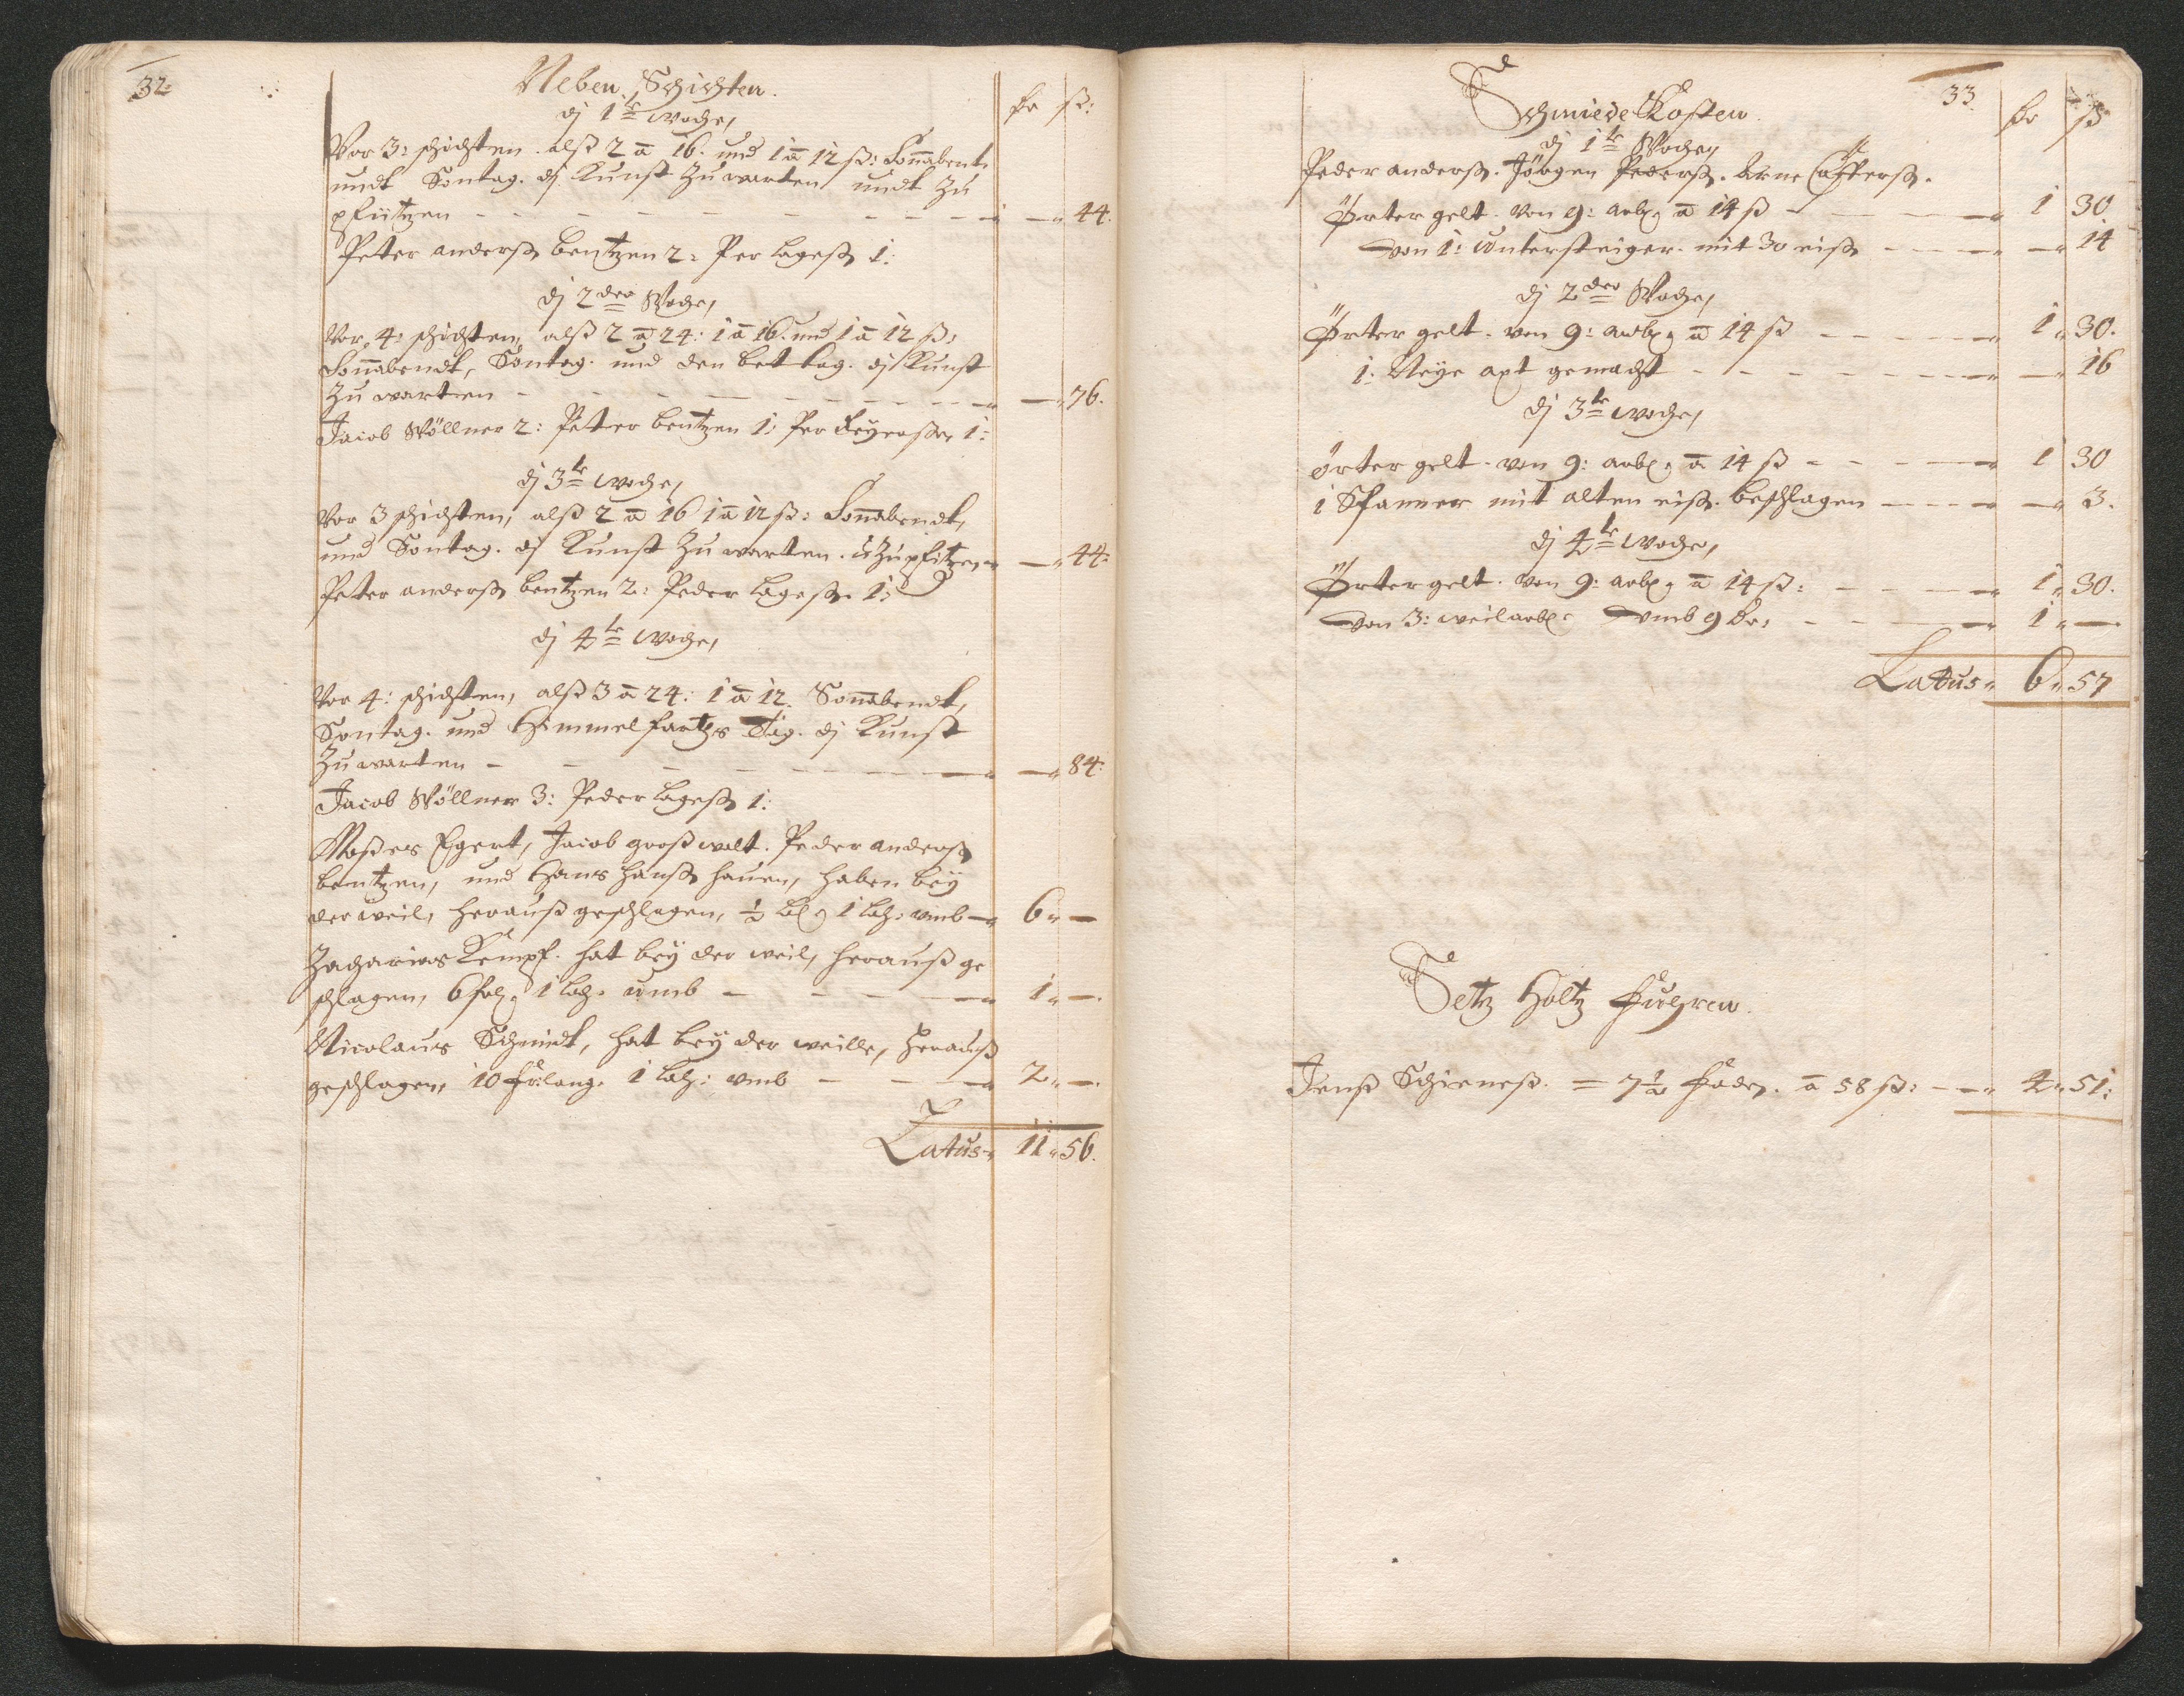 32.
Neben Schichten.
dj 1te woche,
Dr ß:
Vor 3: schichten. alß 2 a 16. und 1 a 12 ß: Soñabent.
undt Sontag. dj Kunst zu warten undt zu
pfützen - - - - - - - - - - - 44.
Peter anderß bentzen 2: Per lageß 1:
dj 2der Woche,
Vor. 4: schichten, alß 2 a 24: 1 a 16. und 1 a 12 ß:
Soñabendt, Sontag. und den bet tag. dj Kunst
Zu warten - - - - - - - - - 76.
Jacob Wöllner 2: Peter bentzen 1: Per 1:
dj 3te woche,
Vor 3 schichten, alß 2 a 16 1 a 12 ß: Soñabendt,
und Sontag. dj Kunst Zu warten. u Zu pfützen - 44:
Peter anderß bentzen 2: Peder lageß. 1:
dj 4te Woche,
Vor 4: schichten, alß 3 a 24: 1 a 12. Soñabendt,
Sontag. und Himmelfarths Tag. dj Kunst
Zu warten - - - - - - - 84:
Jacob Wöllner 3: Peder lageß 1:
Moßes Egert, Jacob großwalt. Peder anderß
bentzen, und Hans Hanß hauen, haben bey
der weil, herauß geschlagen, ½ 1 lach: umb - 6 " -
Zacharias Kempf. hat bey der weil, herauß ge
schlagen, 6 1 lach. umb - - - - 1 " -
Nicolaus Schmidt, hat bey der weille, herauß
geschlagen, 10 1 lach: umb - - - 2 " -
Latus " 11 " 56.
33.
Schmiede Kosten.
Dr ß
dj 1te Woche,
Peder anderß. Jörgen Pederß. Arne
Örter gelt. von 9: arb: a 14 ß - - - 1 30
von 1: untersteiger. mit 30 eiß - - - - 14
dj 2der Woche,
Örter gelt. von 9: arb: a 14 ß - - - - 1 " 30.
1: Neye axt gemacht - - - - - - 16
dj 3te woche,
örter gelt. von 9: arb: a 14 ß - - - 1 30
1 Spanner mit alten eiß. beschlagen - - - - 3.
dj 4te woche,
Örter gelt. von 9: arb: a 14 ß: - - - 1 " 30.
von 3: weilarb: umb 9 Dr: - - - 1 " -
Latus " 6 " 57
Setz Holtz Fuhren.
Jenß Schieneß. = 7½ fad. a 58 ß: - - 4 " 51: